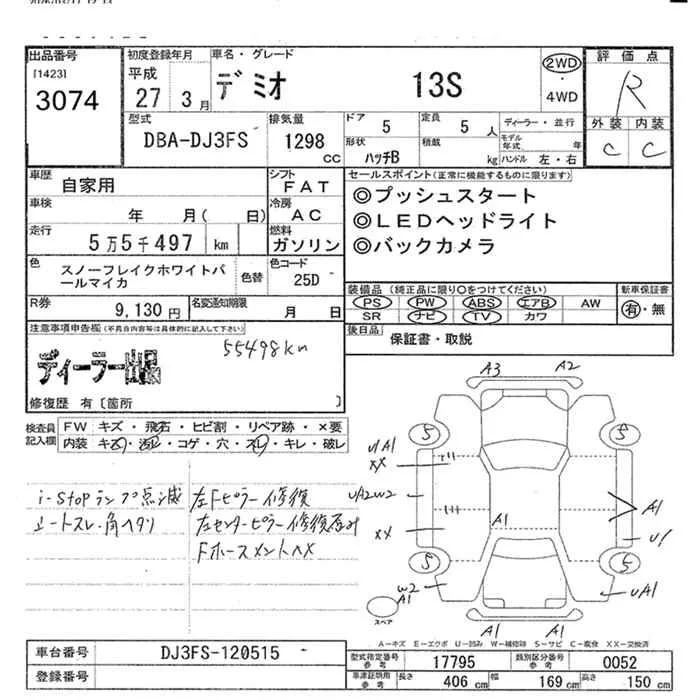 出品番号
[1423]
3074
初度登録年月
平成
27 3月
車名・グレード
デミオ 13S
2WD
・
4WD
評価点
R
外装 内装
C C
型式
DBA-DJ3FS
排気量
1298
CC
ドア
5
定員
5 人
ディーラー・並行
形状
ハッチB
積載
kg
モデル年式 年
ハンドル 左・右
車歴
自家用
シフト
FAT
車検
年 月( 日)
冷房
AC
走行
5万5千497 km
燃料
ガソリン
セールスポイント(正常に機能するものに限ります)
◎プッシュスタート
◎LEDヘッドライト
◎バックカメラ
色
スノーフレイクホワイトパールマイカ
色替
色コード
25D
R券
9,130円
名変通知期限
月 日
装備品 (純正品に限り○をつけてください)
PS PW ABS エアB AW
SR ナビ TV カワ
新車保証書
有・無
後日品
保証書・取説
注意事項申告欄(不具合内容等は具体的に記入して下さい)
55498km
ディーラー出品
修復歴 有〔箇所 〕
検査員記入欄
FW キズ・飛石・ヒビ割・リペア跡・×要
内装 キズ・汚れ・コゲ・穴・スレ・キレ・破レ
i-stopランプ点滅
シートスレ・角ヘタリ
左Fピラー修復
左センターピラー修復歪み
A3 A2
5 5
UA1
XX
UA2W2
XX
A1
A1
U1
5 5
W2
A1
UA1
A1 A1
スペア
A-キズ E-エクボ U-凹み W-補修跡 S-サビ C-腐食 XX-交換済
車台番号
DJ3FS-120515
登録番号
型式指定番号
参考
17795
類別区分番号
参考
0052
車庫証明用
参考
長さ
406 cm
幅
169 cm
高さ
150 cm